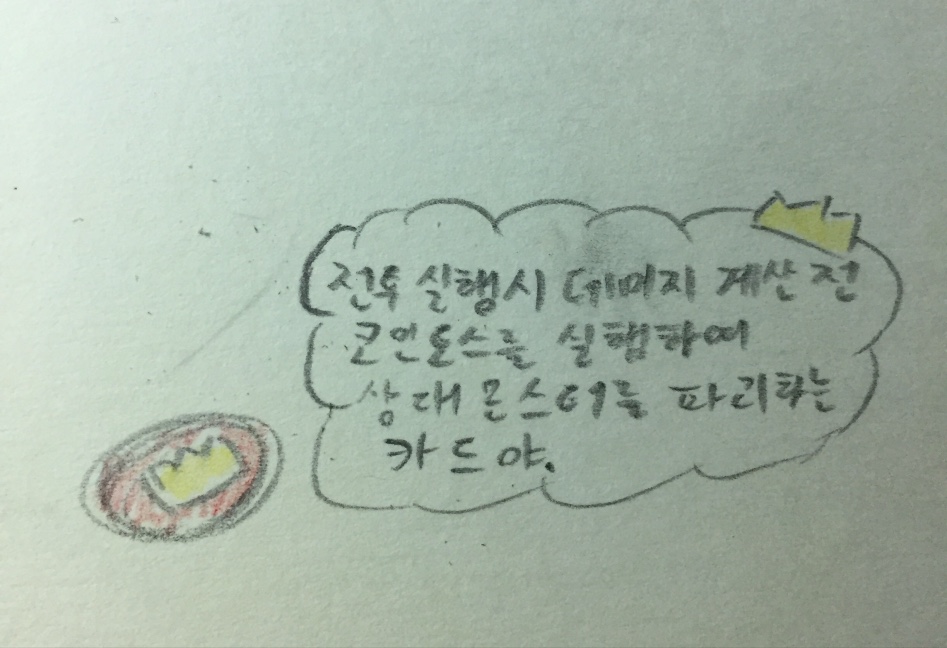 전투 실행시 데미지 계산 전
코인토스를 실행하여
상대 몬스터를 파괴하는
카드야.